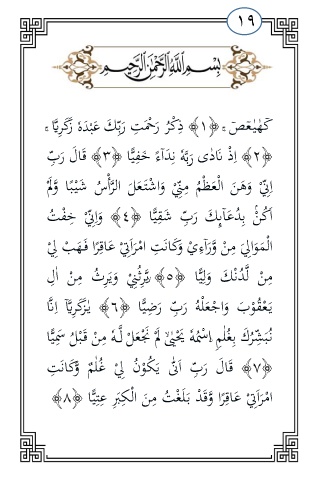 ١٩
بِسْمِ اللَّهِ الرَّحْمَٰنِ الرَّحِيمِ
كۤهٰيٰعۤصۤ ۚ ﴿١﴾ ذِكْرُ رَحْمَتِ رَبِّكَ عَبْدَهٗ زَكَرِيَّا ۚ
﴿٢﴾ اِذْ نَادٰى رَبَّهٗ نِدَاۤءً خَفِيًّا ﴿٣﴾ قَالَ رَبِّ
اِنِّيْ وَهَنَ الْعَظْمُ مِنِّيْ وَاشْتَعَلَ الرَّأْسُ شَيْبًا وَّلَمْ
اَكُنْۢ بِدُعَاۤىِٕكَ رَبِّ شَقِيًّا ﴿٤﴾ وَاِنِّيْ خِفْتُ
الْمَوَالِيَ مِنْ وَّرَاۤءِيْ وَكَانَتِ امْرَاَتِيْ عَاقِرًا فَهَبْ لِيْ
مِنْ لَّدُنْكَ وَلِيًّا ﴿٥﴾ يَّرِثُنِيْ وَيَرِثُ مِنْ اٰلِ
يَعْقُوْبَ وَاجْعَلْهُ رَبِّ رَضِيًّا ﴿٦﴾ يٰزَكَرِيَّآ اِنَّا
نُبَشِّرُكَ بِغُلٰمِ ࣙاسْمُهٗ يَحْيٰىۙ لَمْ نَجْعَلْ لَّهٗ مِنْ قَبْلُ سَمِيًّا
﴿٧﴾ قَالَ رَبِّ اَنّٰى يَكُوْنُ لِيْ غُلٰمٌ وَّكَانَتِ
امْرَاَتِيْ عَاقِرًا وَّقَدْ بَلَغْتُ مِنَ الْكِبَرِ عِتِيًّا ﴿٨﴾